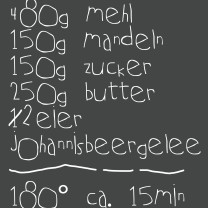 480g mehl
150g mandeln
150g zucker
250g butter
2eier
johannisbeergelee
180° ca. 15min